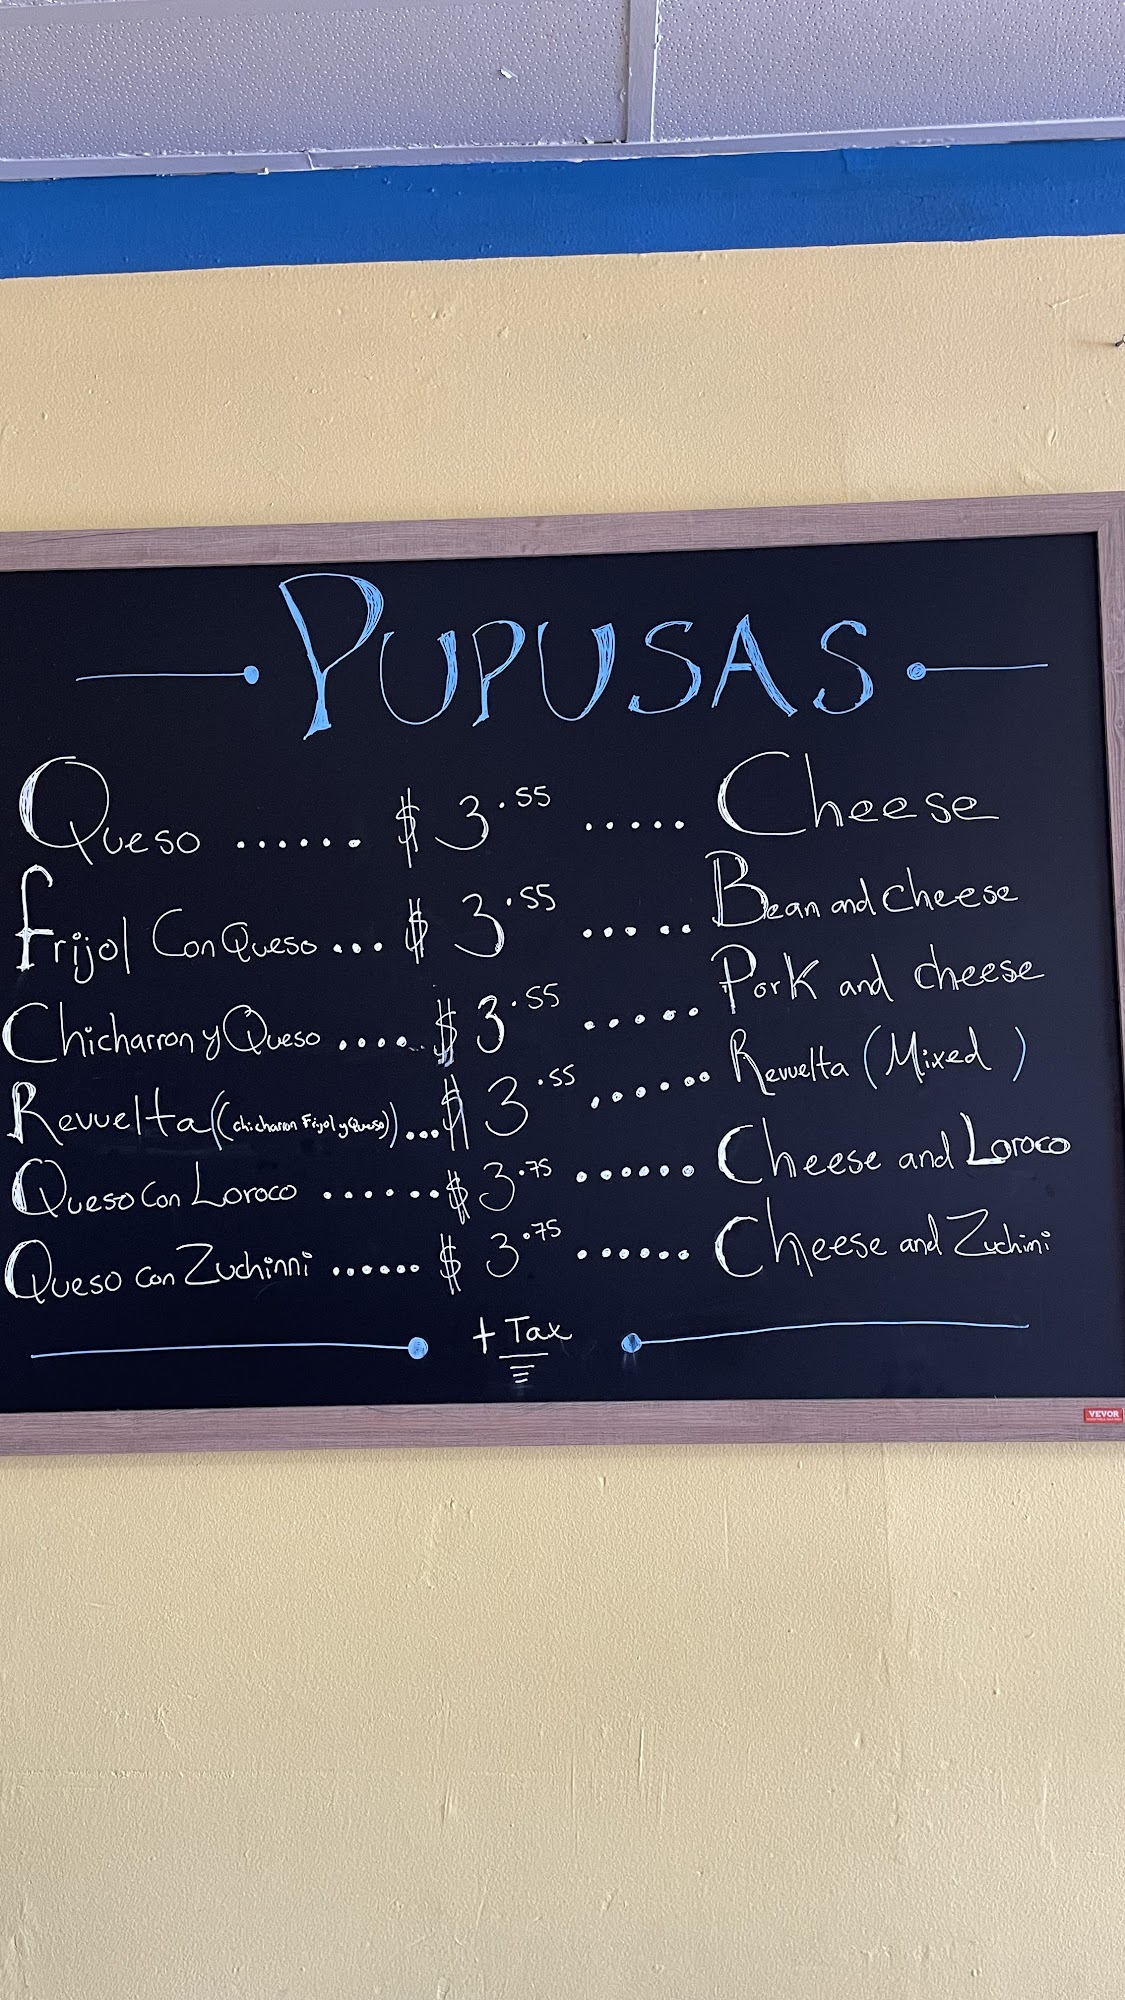 PUPUSAS
Queso ...... $ 3.55 ..... Cheese
Frijol Con Queso ... $ 3.55 ..... Bean and cheese
Chicharron y Queso .... $ 3.55 ..... Pork and cheese
Revuelta ((chicharron Frijol y Queso)) ... $ 3.55 ...... Revuelta (Mixed )
Queso Con Loroco ...... $ 3.75 ...... Cheese and Loroco
Queso con Zuchinni ...... $ 3.75 ...... Cheese and Zuchini
+ Tax
VEVOR